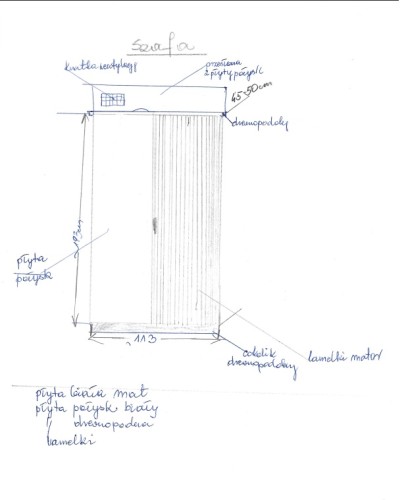 Szafa
kratka wentylacji
z płyty połysk
45-50cm
drewnopodobny
płyta
połysk
113
cokolik
drewnopodobny
lamelki mator
płyta biała mat
płyta połysk biały
drewnopodobna
lamelki